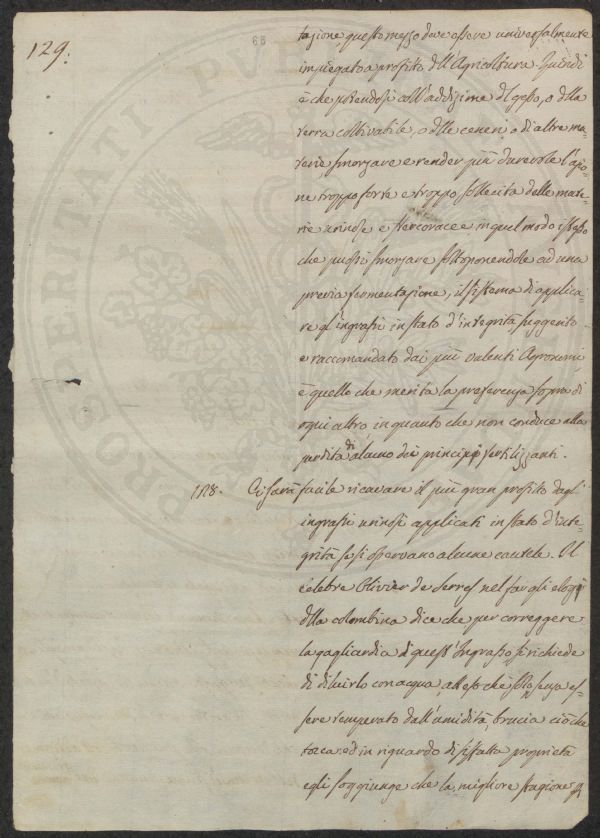 129.
66
tazione questo mezzo deve essere universalmente
impiegato a profitto dell'Agricoltura. Quindi
è che potendosi coll'addizione del gesso, o della
terra coltivabile, o delle ceneri, o di altre ma-
terie smorzare e render più durevole l'azio-
ne troppo forte e troppo sollecita delle mate-
rie urinose e stercoracee in quel modo istesso
che puossi smorzare sottoponendole ad una
previa fermentazione, il sistema di applica-
re gl'ingrassi in stato d'integrità suggerito
e raccomandato dai più valenti Agronomi,
è quello che merita la preferenza sopra di
ogni altro in quanto che non conduce alla
perdita di alcuno dei principj fertilizzanti.
128. Ci sarà facile ricavare il più gran profitto dagl'
ingrassi urinosi applicati in stato d'inte-
grità se si osservano alcune cautele. Il
celebre Olivier de Serres nel far gli elogj
della colombina dice che per correggere
la gagliardia di quest'Ingrasso si richiede
di diluirlo con acqua, attesochè senza es-
sere temperato dall'umidità, brucia ciò che
tocca: ed in riguardo di siffatta proprietà
egli soggiunge che la migliore stagione
PROSPERITATI PUBLICAE